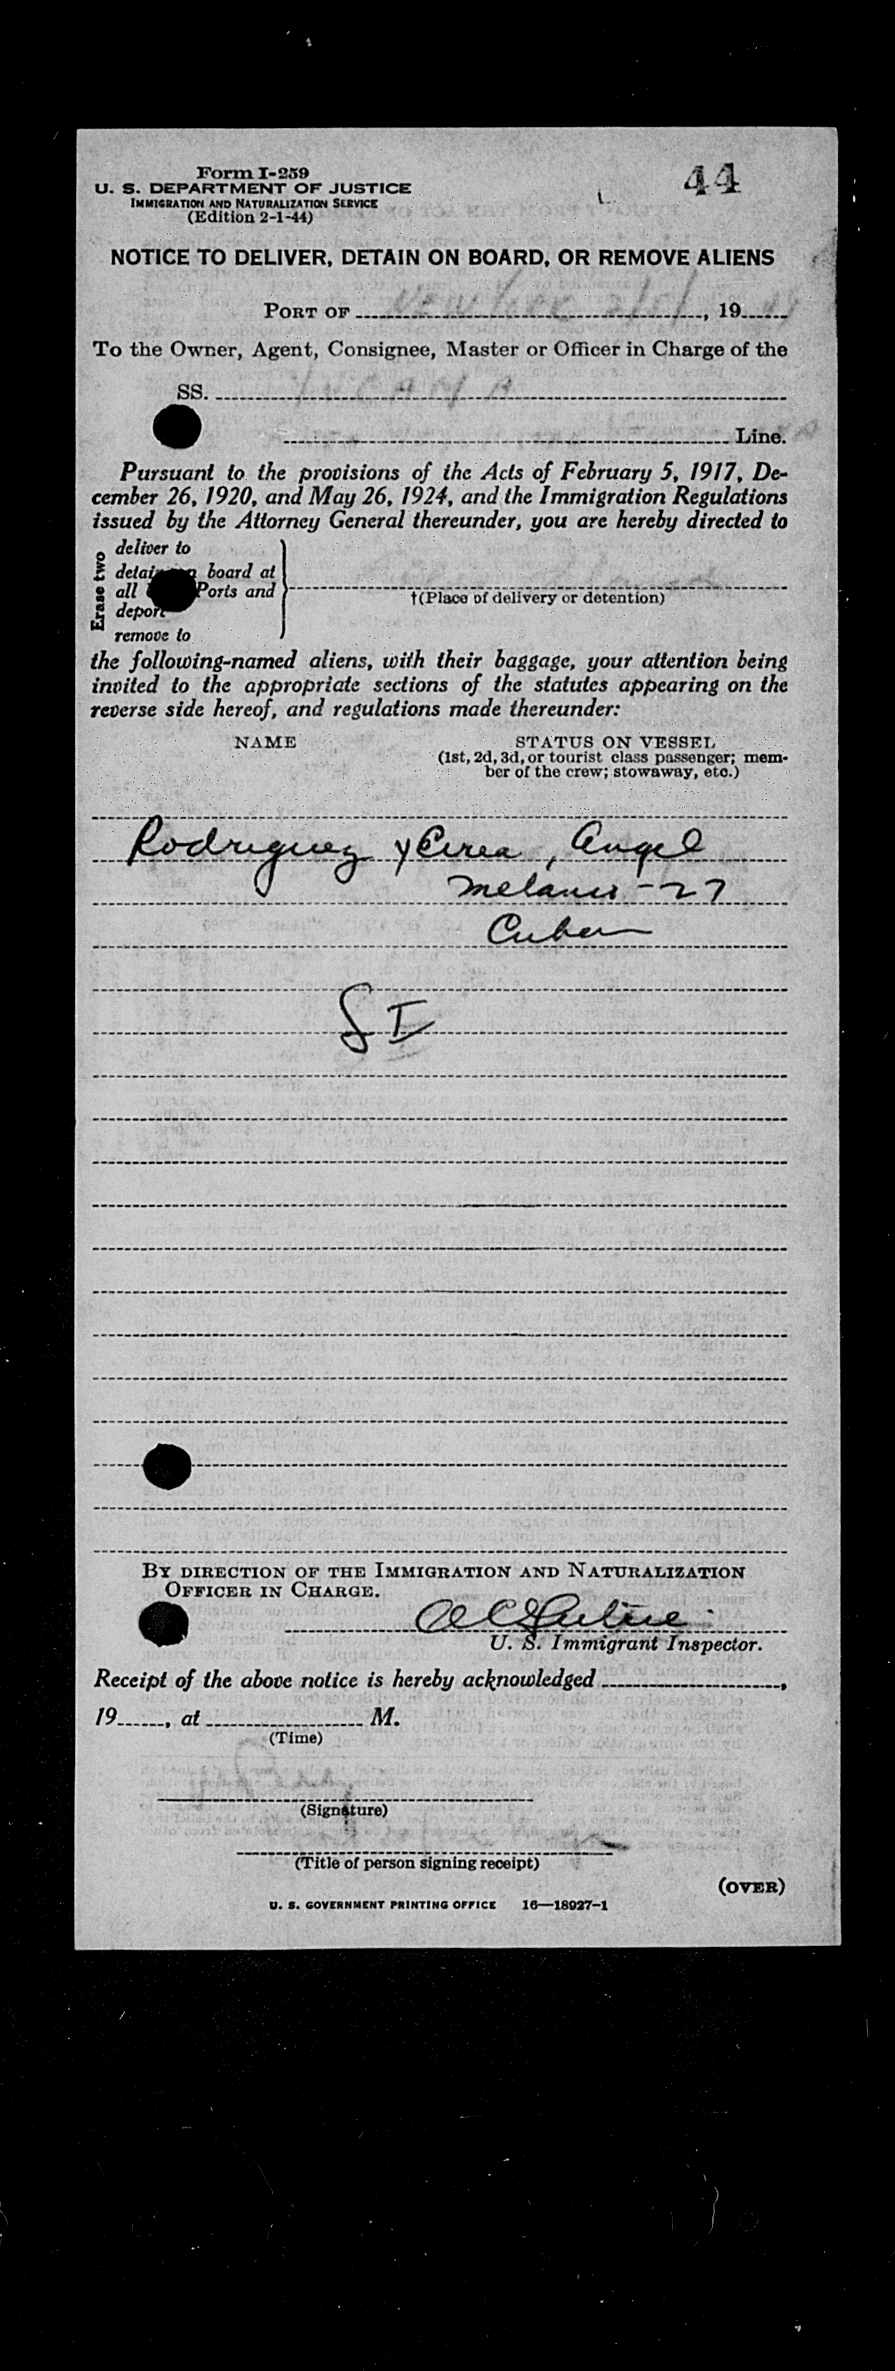 44
Form I-259
U. S. DEPARTMENT OF JUSTICE
IMMIGRATION AND NATURALIZATION SERVICE
(Edition 2-1-44)
NOTICE TO DELIVER, DETAIN ON BOARD, OR REMOVE ALIENS
PORT OF New York, 19
To the Owner, Agent, Consignee, Master or Officer in Charge of the
SS.
Line.
Pursuant to the provisions of the Acts of February 5, 1917, De-
cember 26, 1920, and May 26, 1924, and the Immigration Regulations
issued by the Attorney General thereunder, you are hereby directed to
Erase two
deliver to
detain on board at
all Ports and
deport
remove to
†(Place of delivery or detention)
the following-named aliens, with their baggage, your attention being
invited to the appropriate sections of the statutes appearing on the
reverse side hereof, and regulations made thereunder:
NAME STATUS ON VESSEL
(1st, 2d, 3d, or tourist class passenger; mem-
ber of the crew; stowaway, etc.)
Rodriguez y, Angel
- 27
Cuban
SI
BY DIRECTION OF THE IMMIGRATION AND NATURALIZATION
OFFICER IN CHARGE.
U. S. Immigrant Inspector.
Receipt of the above notice is hereby acknowledged ,
19 , at M.
(Time)
(Signature)
(Title of person signing receipt)
(OVER)
U. S. GOVERNMENT PRINTING OFFICE 16—18927-1